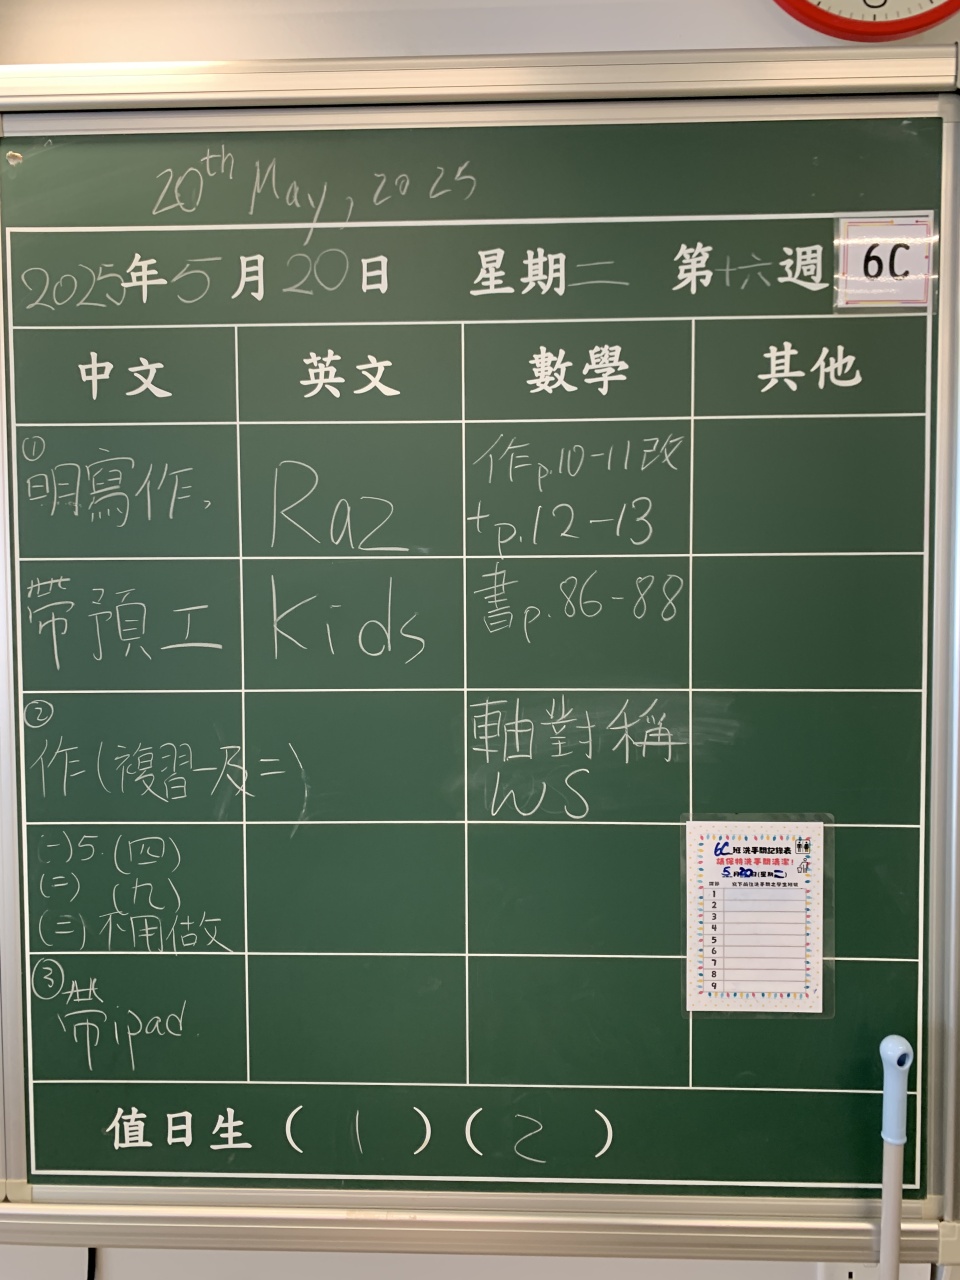 20th May, 2025
2025年5月20日 星期二 第十六週 6C
中文 英文 數學 其他
① 明寫作,
帶預工
② 作(複習一及二)
(一)5 (四)
(二) (九)
(三) 不用做
③ 帶ipad.
Raz
Kids
作p.10-11改
+p.12-13
書p.86-88
軸對稱
WS
6C班洗手間記錄表
請保持洗手間清潔!
5月20日(星期二)
1
2
3
4
5
6
7
8
9
值日生(1)(2)